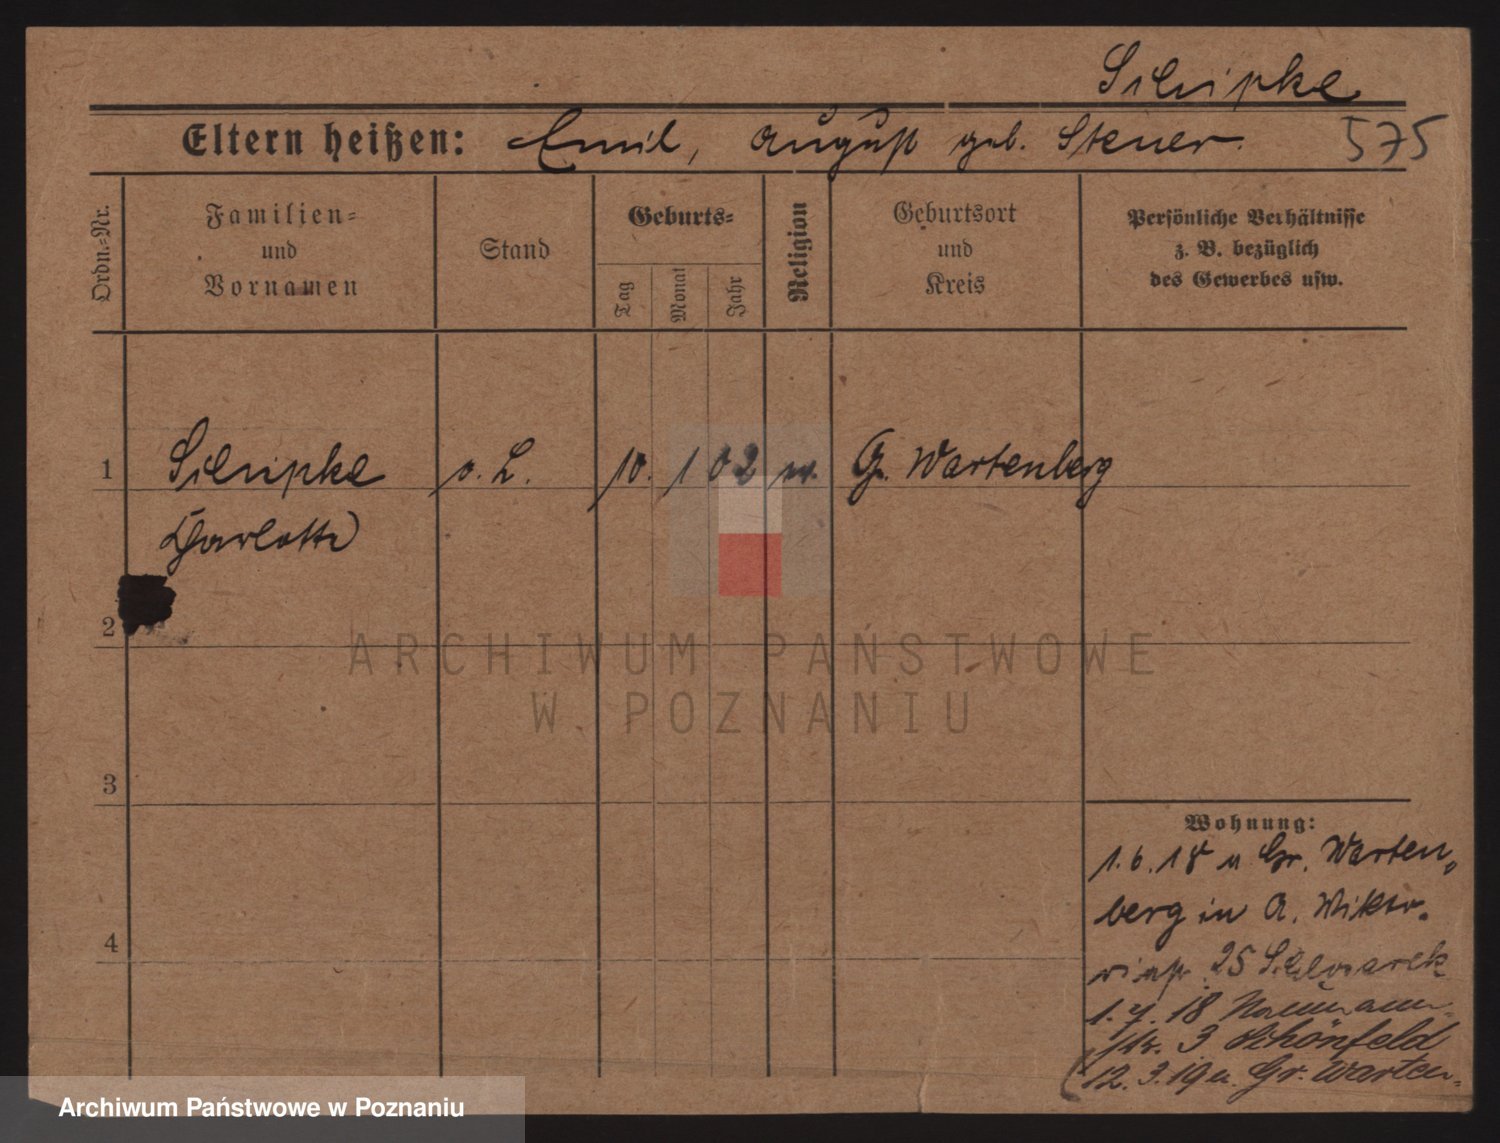 Eltern heißen: Emil, August geb. Steuer.
575
Ordn.-Nr.
Familien=
und
Vornamen
Stand
Geburts=
Tag
Monat
Jahr
Religion
Geburtsort
und
Kreis
Persönliche Verhältnisse
z. B. bezüglich
des Gewerbes usw.
1 o. L. 10. 1 02 G. Wartenberg
Charlotte
2
3
4
Wohnung:
1. 6. 18 Gr. Warten-
berg in A. Wikto-
25
1. 7. 18 Naumann-
str. 3 Schönfeld
12. 3. 19 Gr. Warten-
ARCHIWUM PAŃSTWOWE
W POZNANIU
Archiwum Państwowe w Poznaniu